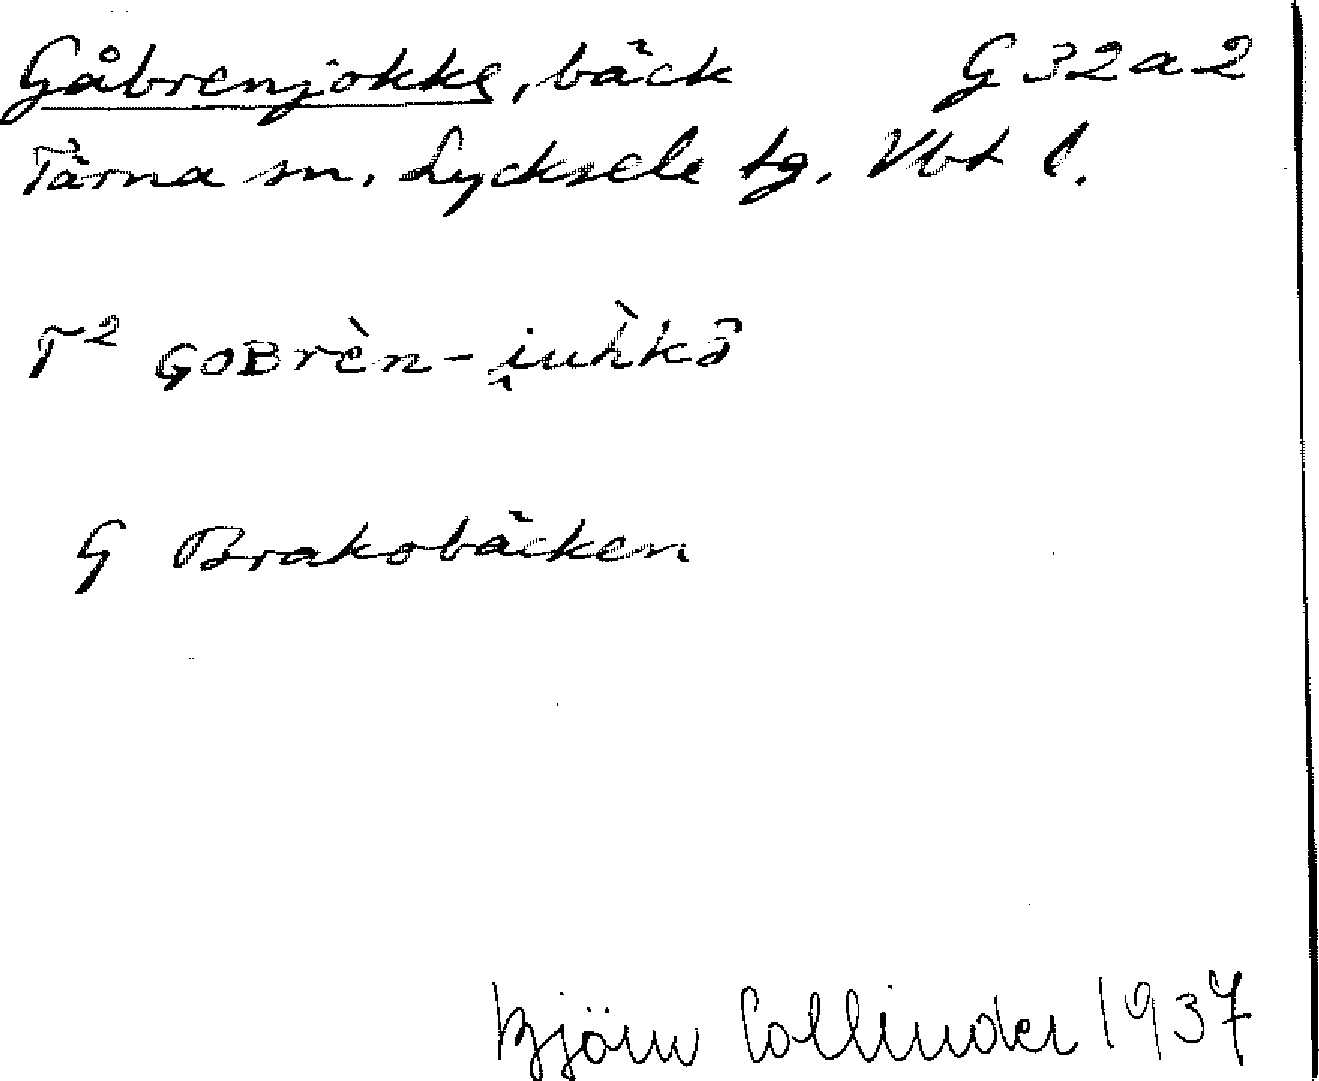 Gåbrenjokke, bäck G 32 a 2
Tärna sn. Lycksele tg. Vbt l.
T² GOBrèn-i̯uh̀kə̑
G Brakobäcken
Björn Collinder 1937